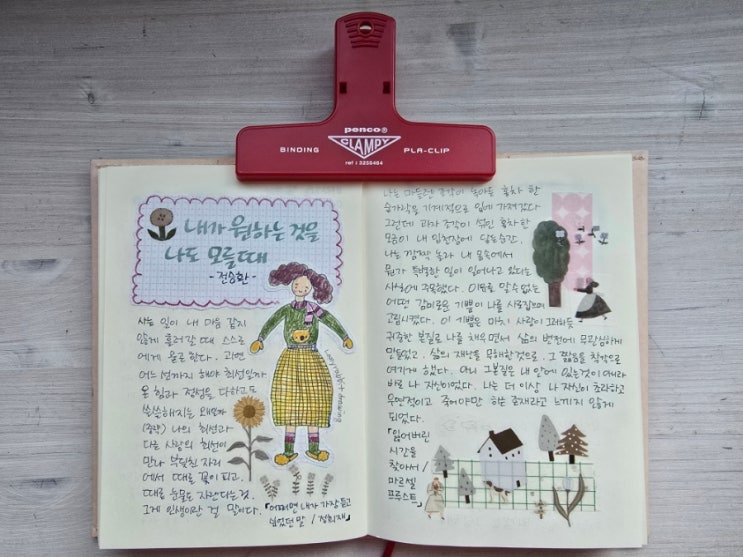 penco®
CLAMPY
BINDING
PLA-CLIP
내가 원하는 것을
나도 모를때
- 전승환 -
사는 일이 내 마음 같지
않게 흘러갈 때 스스로
에게 묻곤 한다. 과연
어느 선까지 해야 최선일까
온 힘과 정성을 다하고도
쓸쓸해지는
(중략) 나의 최선과
다른 사람의 최선이
만나 부딪친 자리
에서 때로 꽃이 피고,
때로 눈물도 자란다는 것.
그게 인생이란 걸 말이다.
「어쩌면 내가 가장 듣고
싶었던 말 / 정희재」
drawing
나는 마들렌 조각이 녹아든 홍차 한
숟가락을 기계적으로 입에 가져갔다
그런데 과자 조각이 섞인 홍차 한
모금이 내 입천장에 닿는 순간,
나는 깜짝 놀라 내 몸속에서
뭔가 특별한 일이 일어나고 있다는
사실에 주목했다. 이유를 알 수 없는
어떤 감미로운 기쁨이 나를 사로잡으며
고립시켰다. 이 기쁨은 마치 사랑이 그러하듯
귀중한 본질로 나를 채우면서 삶의 변전에 무관심하게
만들었고, 삶의 재난을 무해한 것으로, 그 짧음을 착각으로
여기게 했다. 아니 그 본질은 내 안에 있는 것이 아니라
바로 나 자신이었다. 나는 더 이상 나 자신이 초라하고
우연적이고 죽어야만 하는 존재라고 느끼지 않게
되었다.
「잃어버린
시간을
찾아서 /
마르셀
프루스트」